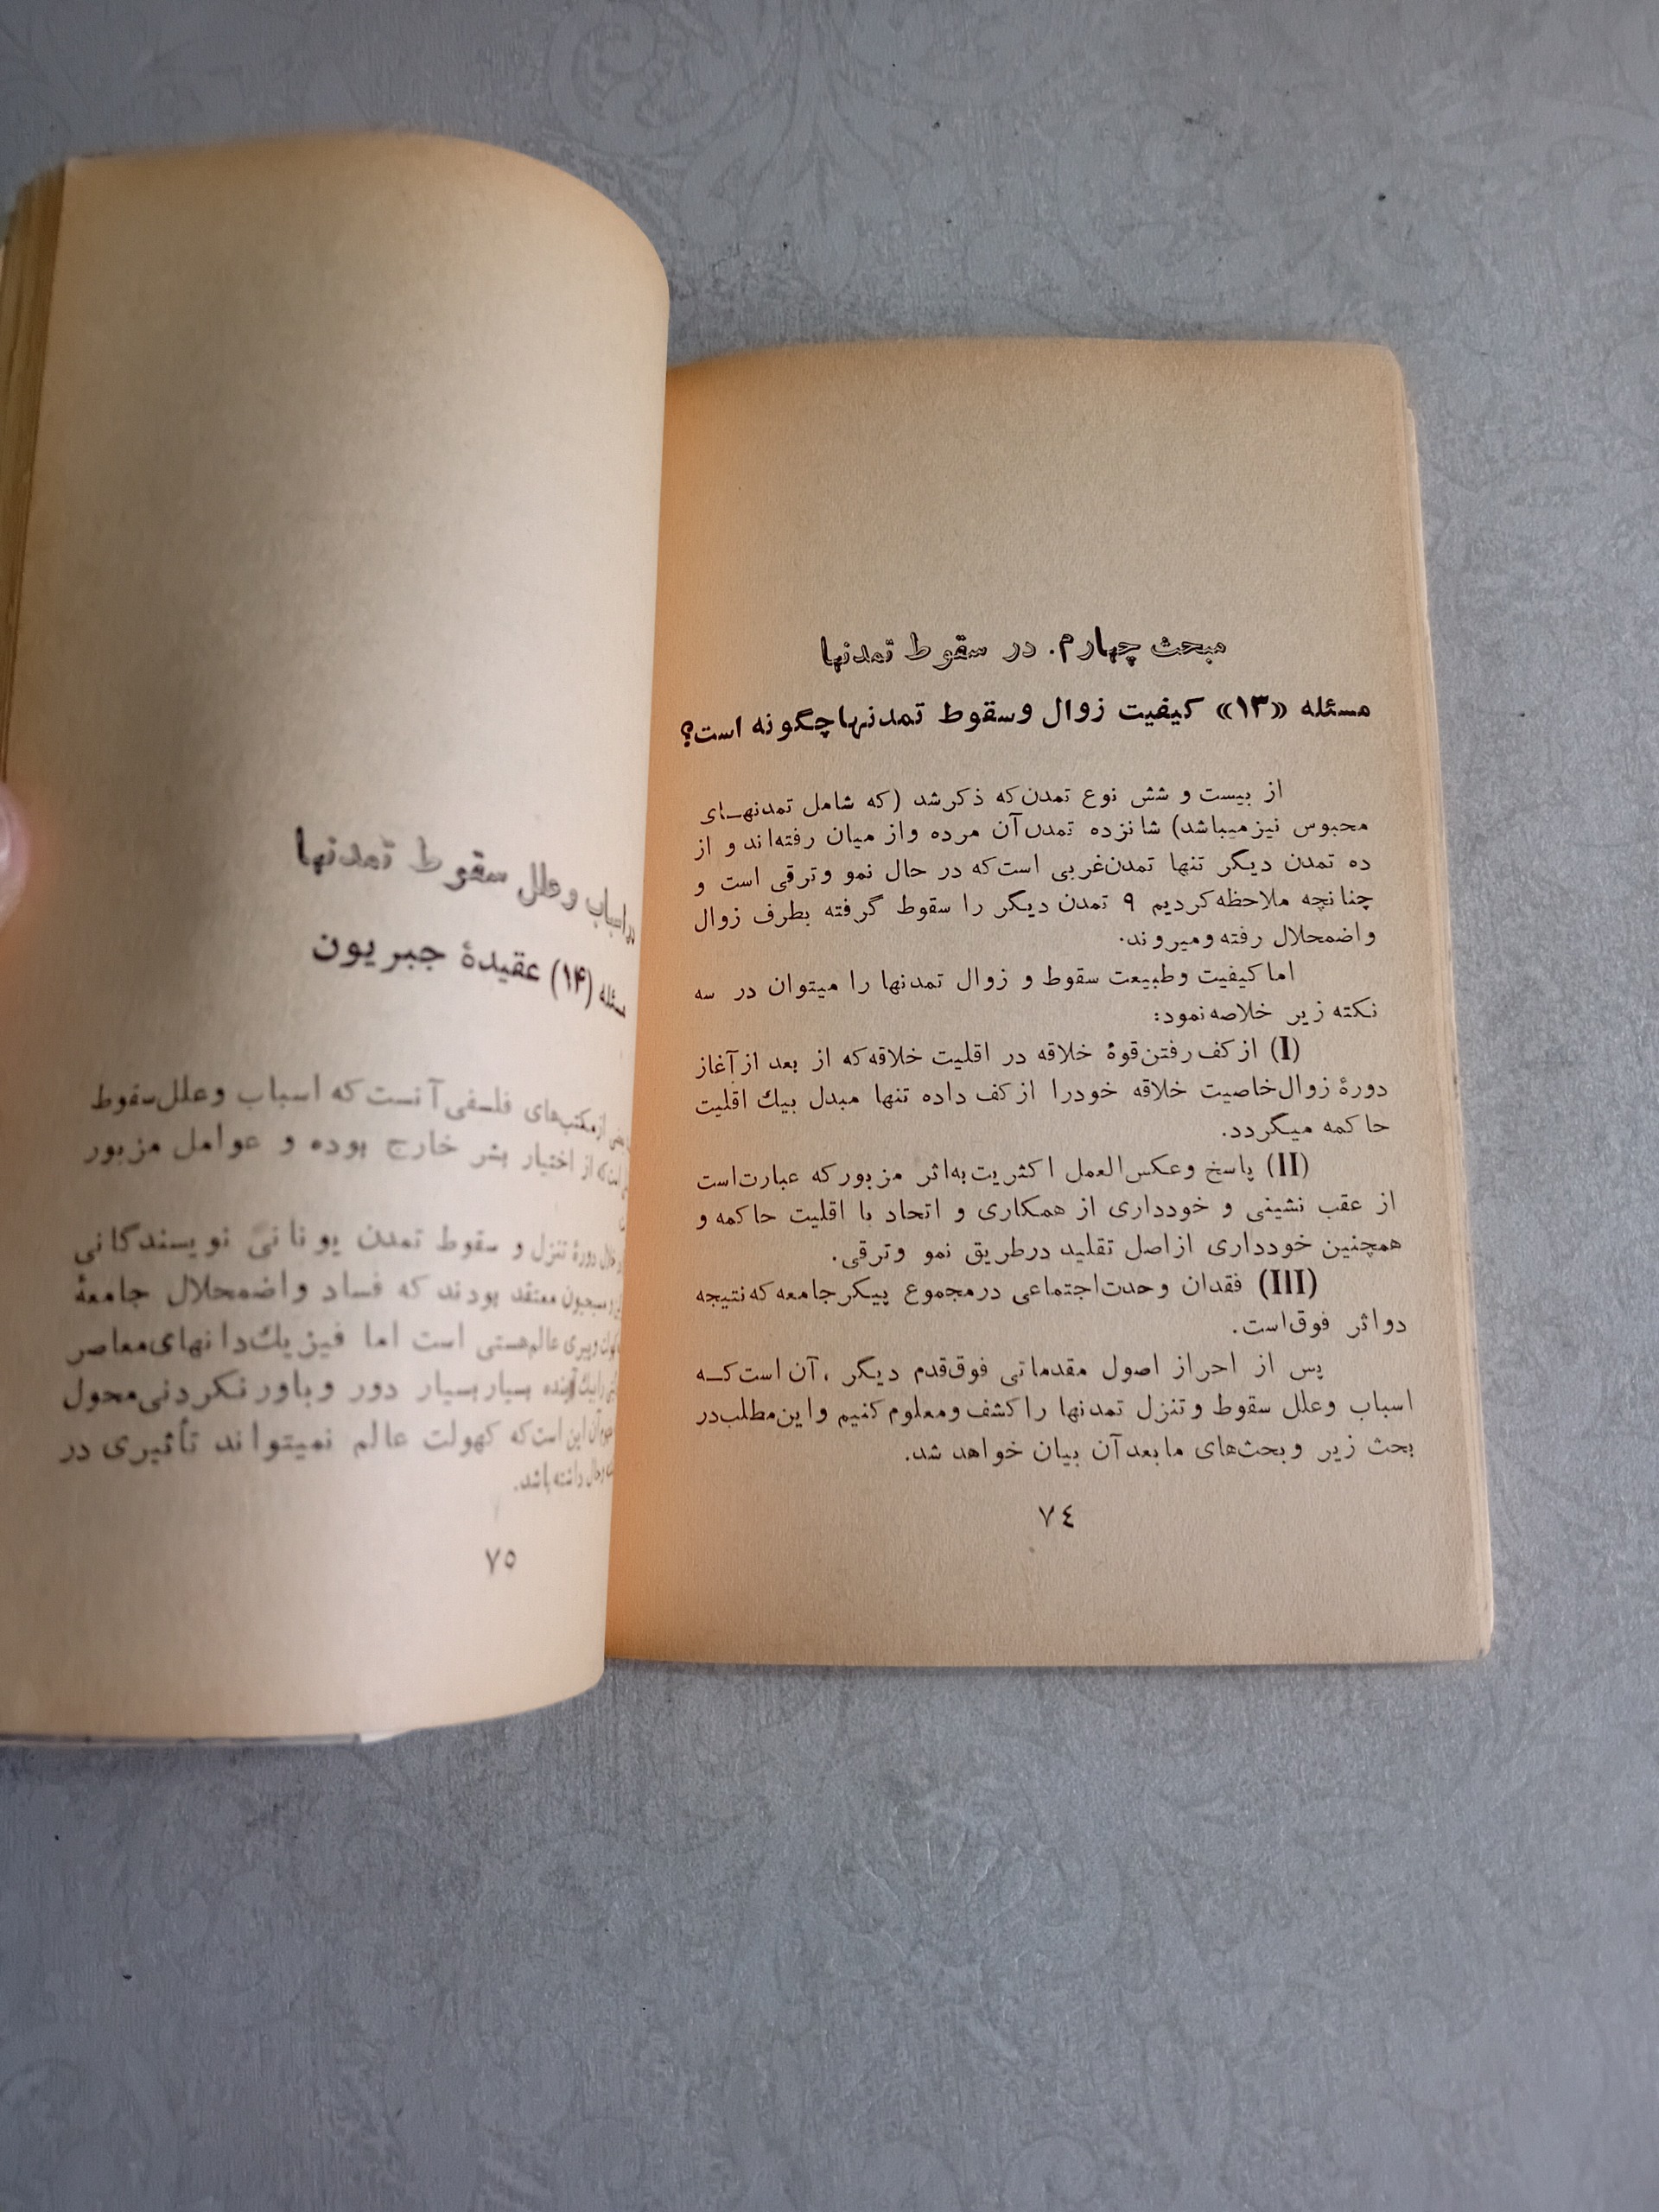 مبحث چهارم. در سقوط تمدنها
مسئله «۱۳» کیفیت زوال وسقوط تمدنها چگونه است؟
از بیست و شش نوع تمدن که ذکر شد (که شامل تمدنهـای
محبوس نیز میباشد) شانزده تمدن آن مرده و از میان رفته‌اند و از
ده تمدن دیگر تنها تمدن غربی است که در حال نمو و ترقی است و
چنانچه ملاحظه کردیم ۹ تمدن دیگر را سقوط گرفته بطرف زوال
واضمحلال رفته و میروند.
اما کیفیت وطبیعت سقوط و زوال تمدنها را میتوان در سه
نکته زیر خلاصه نمود:
(I) از کف رفتن قوهٔ خلاقه در اقلیت خلاقه که از بعد از آغاز
دورهٔ زوال خاصیت خلاقه خود را از کف داده تنها مبدل بیك اقلیت
حاکمه میگردد.
(II) پاسخ وعکس‌العمل اکثریت به اثر مزبور که عبارت است
از عقب نشینی و خودداری از همکاری و اتحاد با اقلیت حاکمه و
همچنین خودداری از اصل تقلید در طریق نمو و ترقی.
(III) فقدان وحدت اجتماعی در مجموع پیکر جامعه که نتیجه
دو اثر فوق است.
پس از احراز اصول مقدماتی فوق قدم دیگر ، آن است کـه
اسباب وعلل سقوط و تنزل تمدنها را کشف و معلوم کنیم و این مطلب در
بحث زیر و بحث‌های ما بعد آن بیان خواهد شد.
۷٤
اسباب وعلل سقوط تمدنها
(۱۴) عقیدهٔ جبریون
از مکتب‌های فلسفی آنست که اسباب وعلل سقوط
که از اختیار بشر خارج بوده و عوامل مزبور
دورهٔ تنزل و سقوط تمدن یونانی نویسندگانی
مسیحیون معتقد بودند که فساد واضمحلال جامعهٔ
وپیری عالم هستی است اما فیزیك‌دانهای معاصر
آینده بسیار بسیار دور و باور نکردنی محول
آن این است که کهولت عالم نمیتواند تأثیری در
داشته باشد.
۷٥